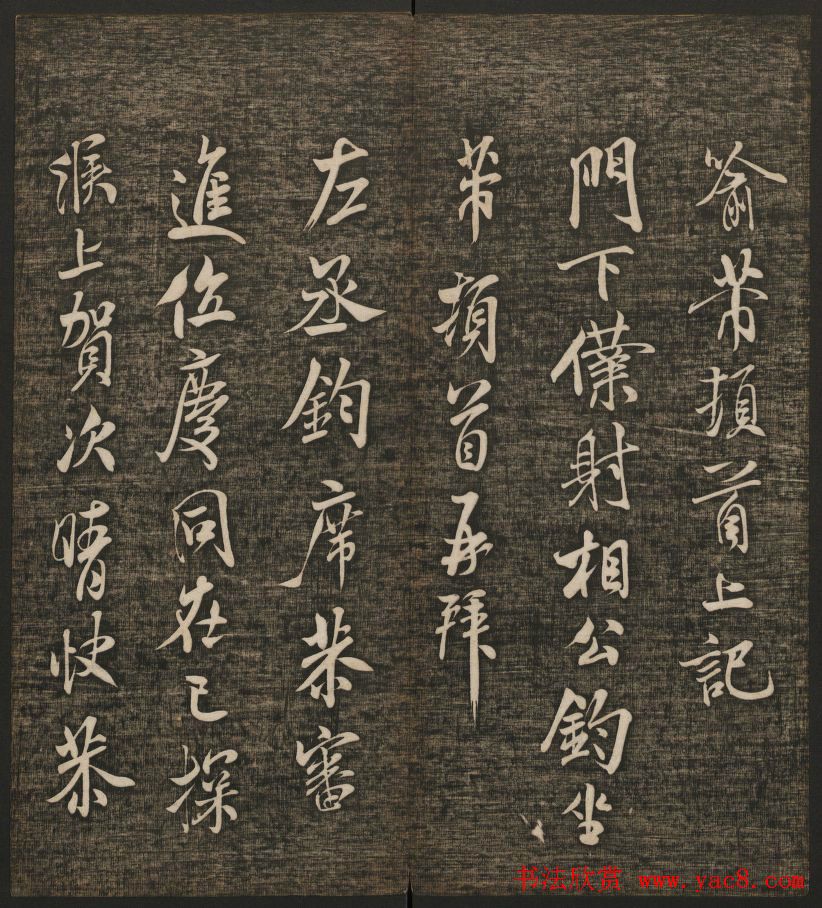 芾頓首上記
門下僕射相公鈞坐
芾頓首再拜
左丞鈞席恭審
進位慶同在已深
候上賀次晴快恭
书法欣赏 www.yac8.com